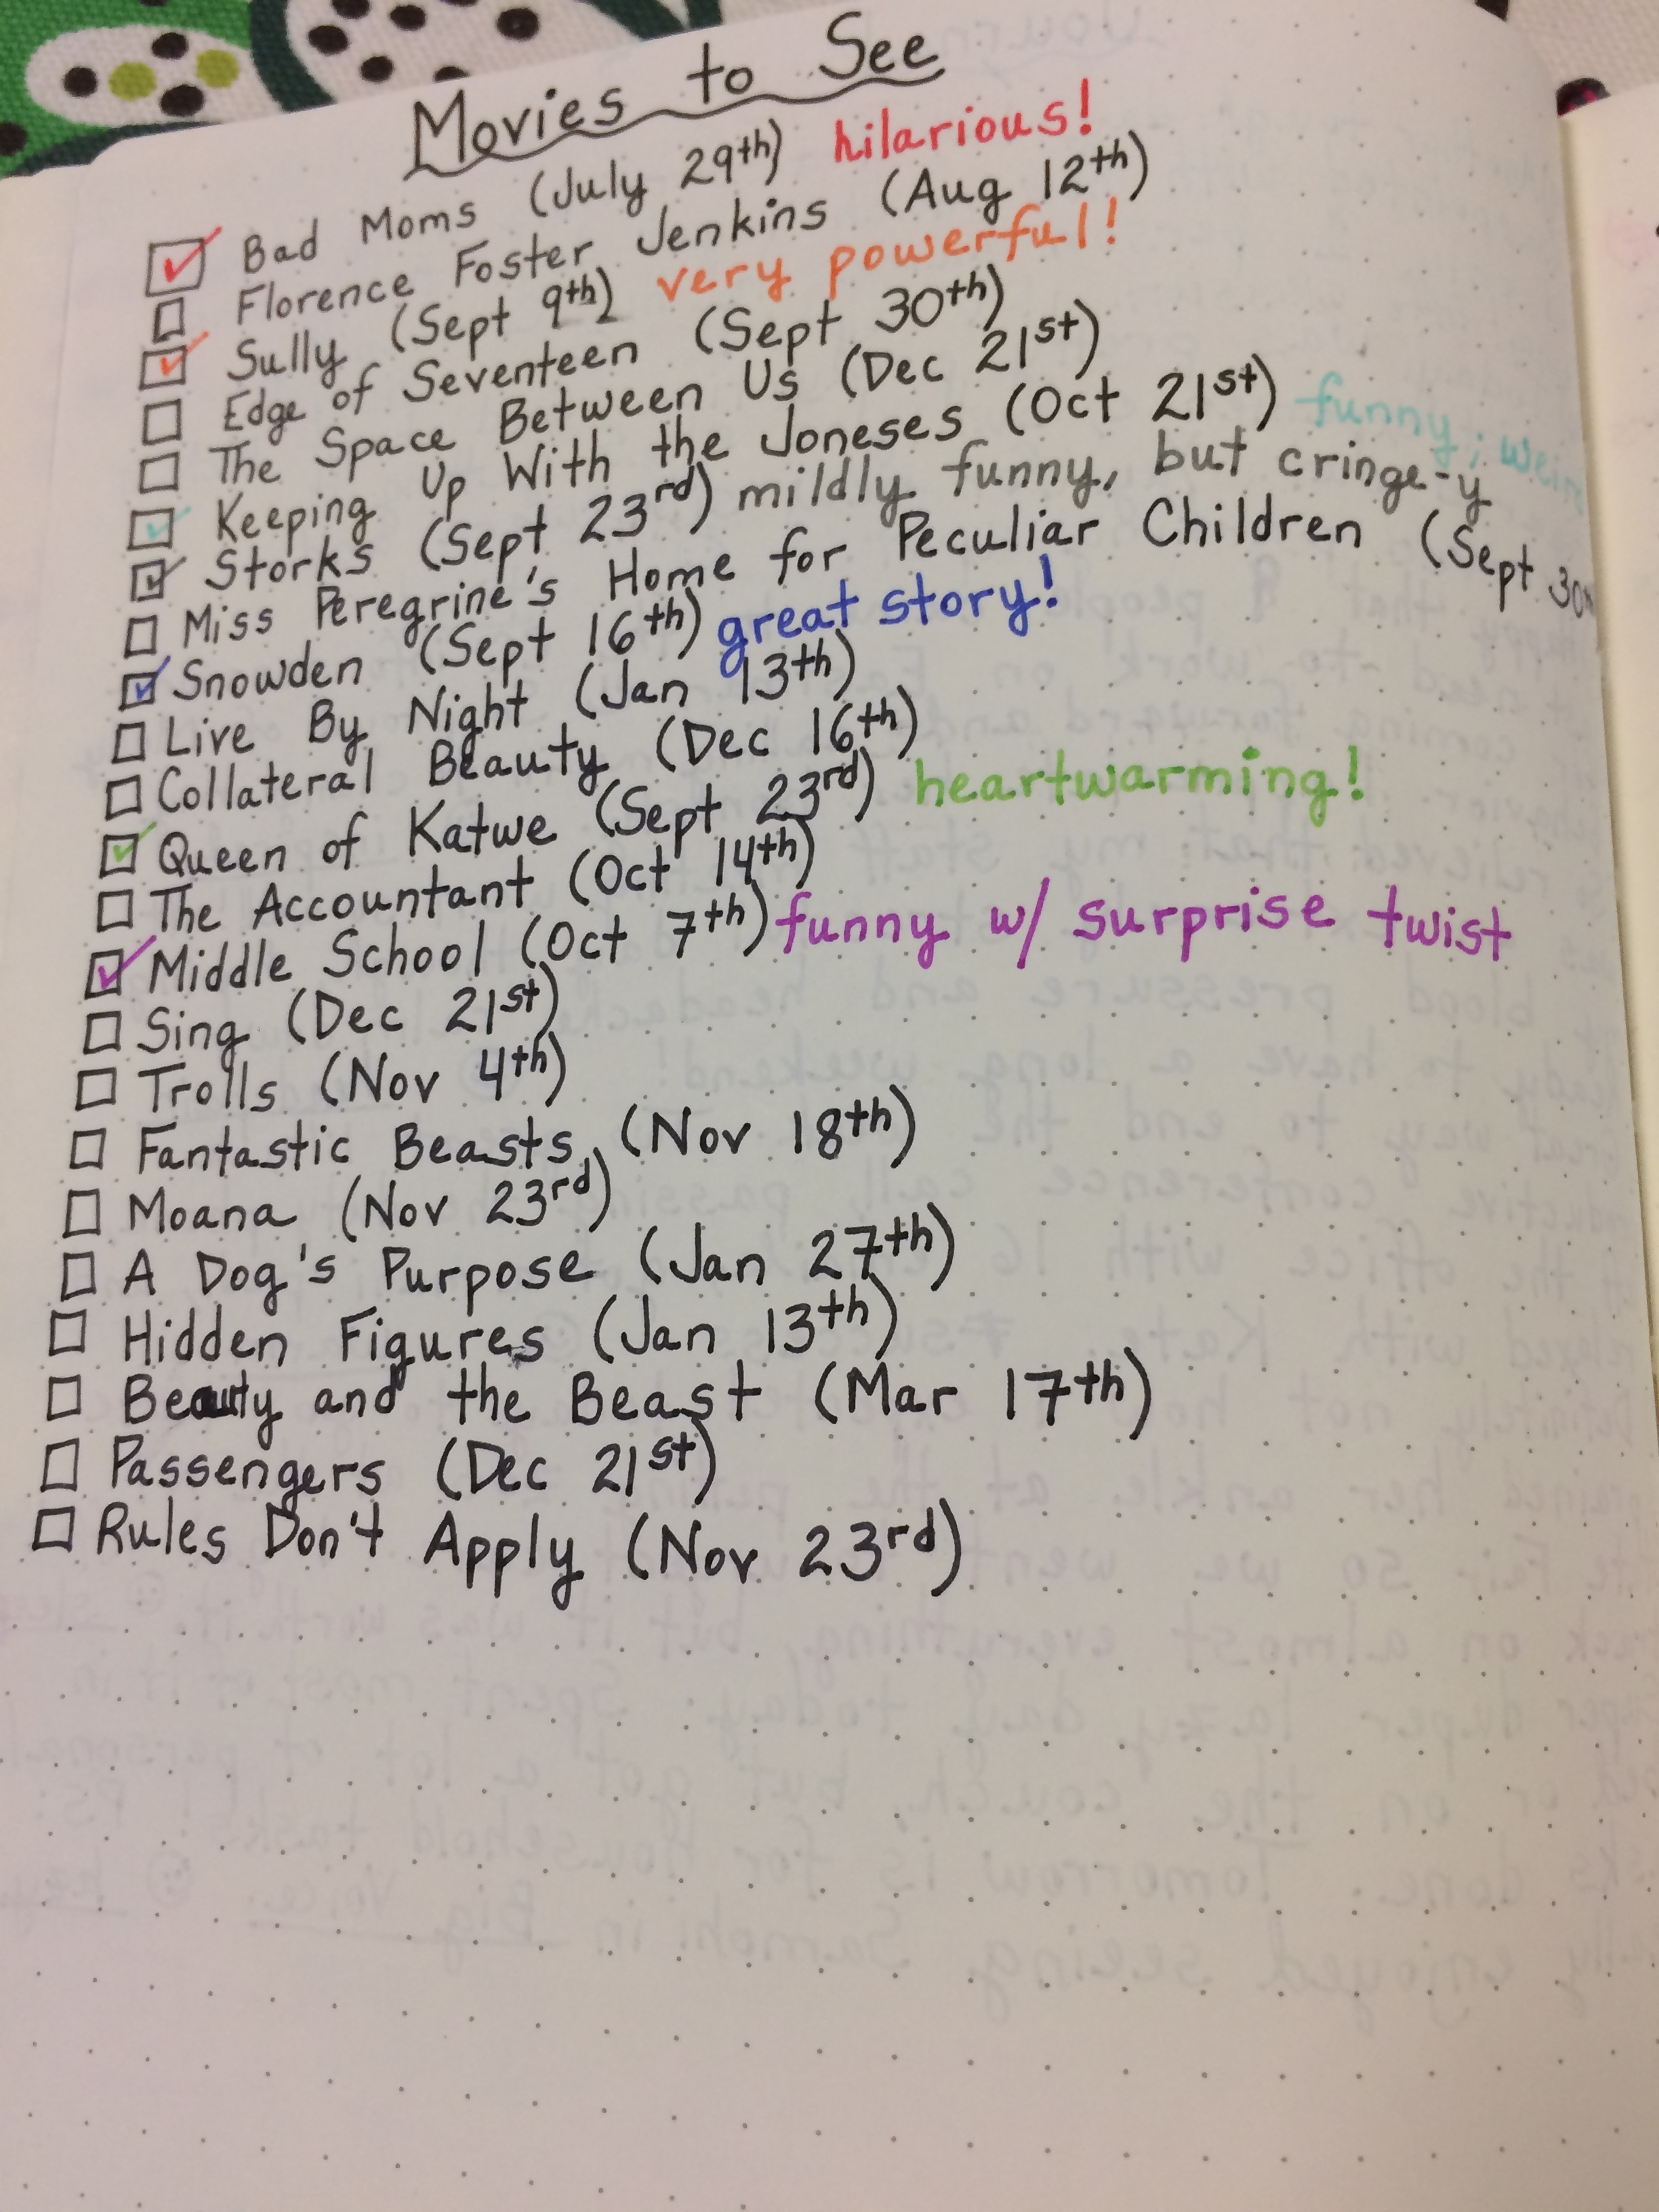 Movies to See
Bad Moms (July 29th) hilarious!
Florence Foster Jenkins (Aug 12th)
Sully (Sept 9th) very powerful!
Edge of Seventeen (Sept 30th)
The Space Between Us (Dec 21st)
Keeping Up With the Joneses (Oct 21st) funny;
Storks (Sept 23rd) mildly funny, but cringe-y
Miss Peregrine's Home for Peculiar Children (Sept 30th
Snowden (Sept 16th) great story!
Live By Night (Jan 13th)
Collateral Beauty (Dec 16th)
Queen of Katwe (Sept 23rd) heartwarming!
The Accountant (Oct 14th)
Middle School (Oct 7th) funny w/ surprise twist
Sing (Dec 21st)
Trolls (Nov 4th)
Fantastic Beasts (Nov 18th)
Moana (Nov 23rd)
A Dog's Purpose (Jan 27th)
Hidden Figures (Jan 13th)
Beauty and the Beast (Mar 17th)
Passengers (Dec 21st)
Rules Don't Apply (Nov 23rd)